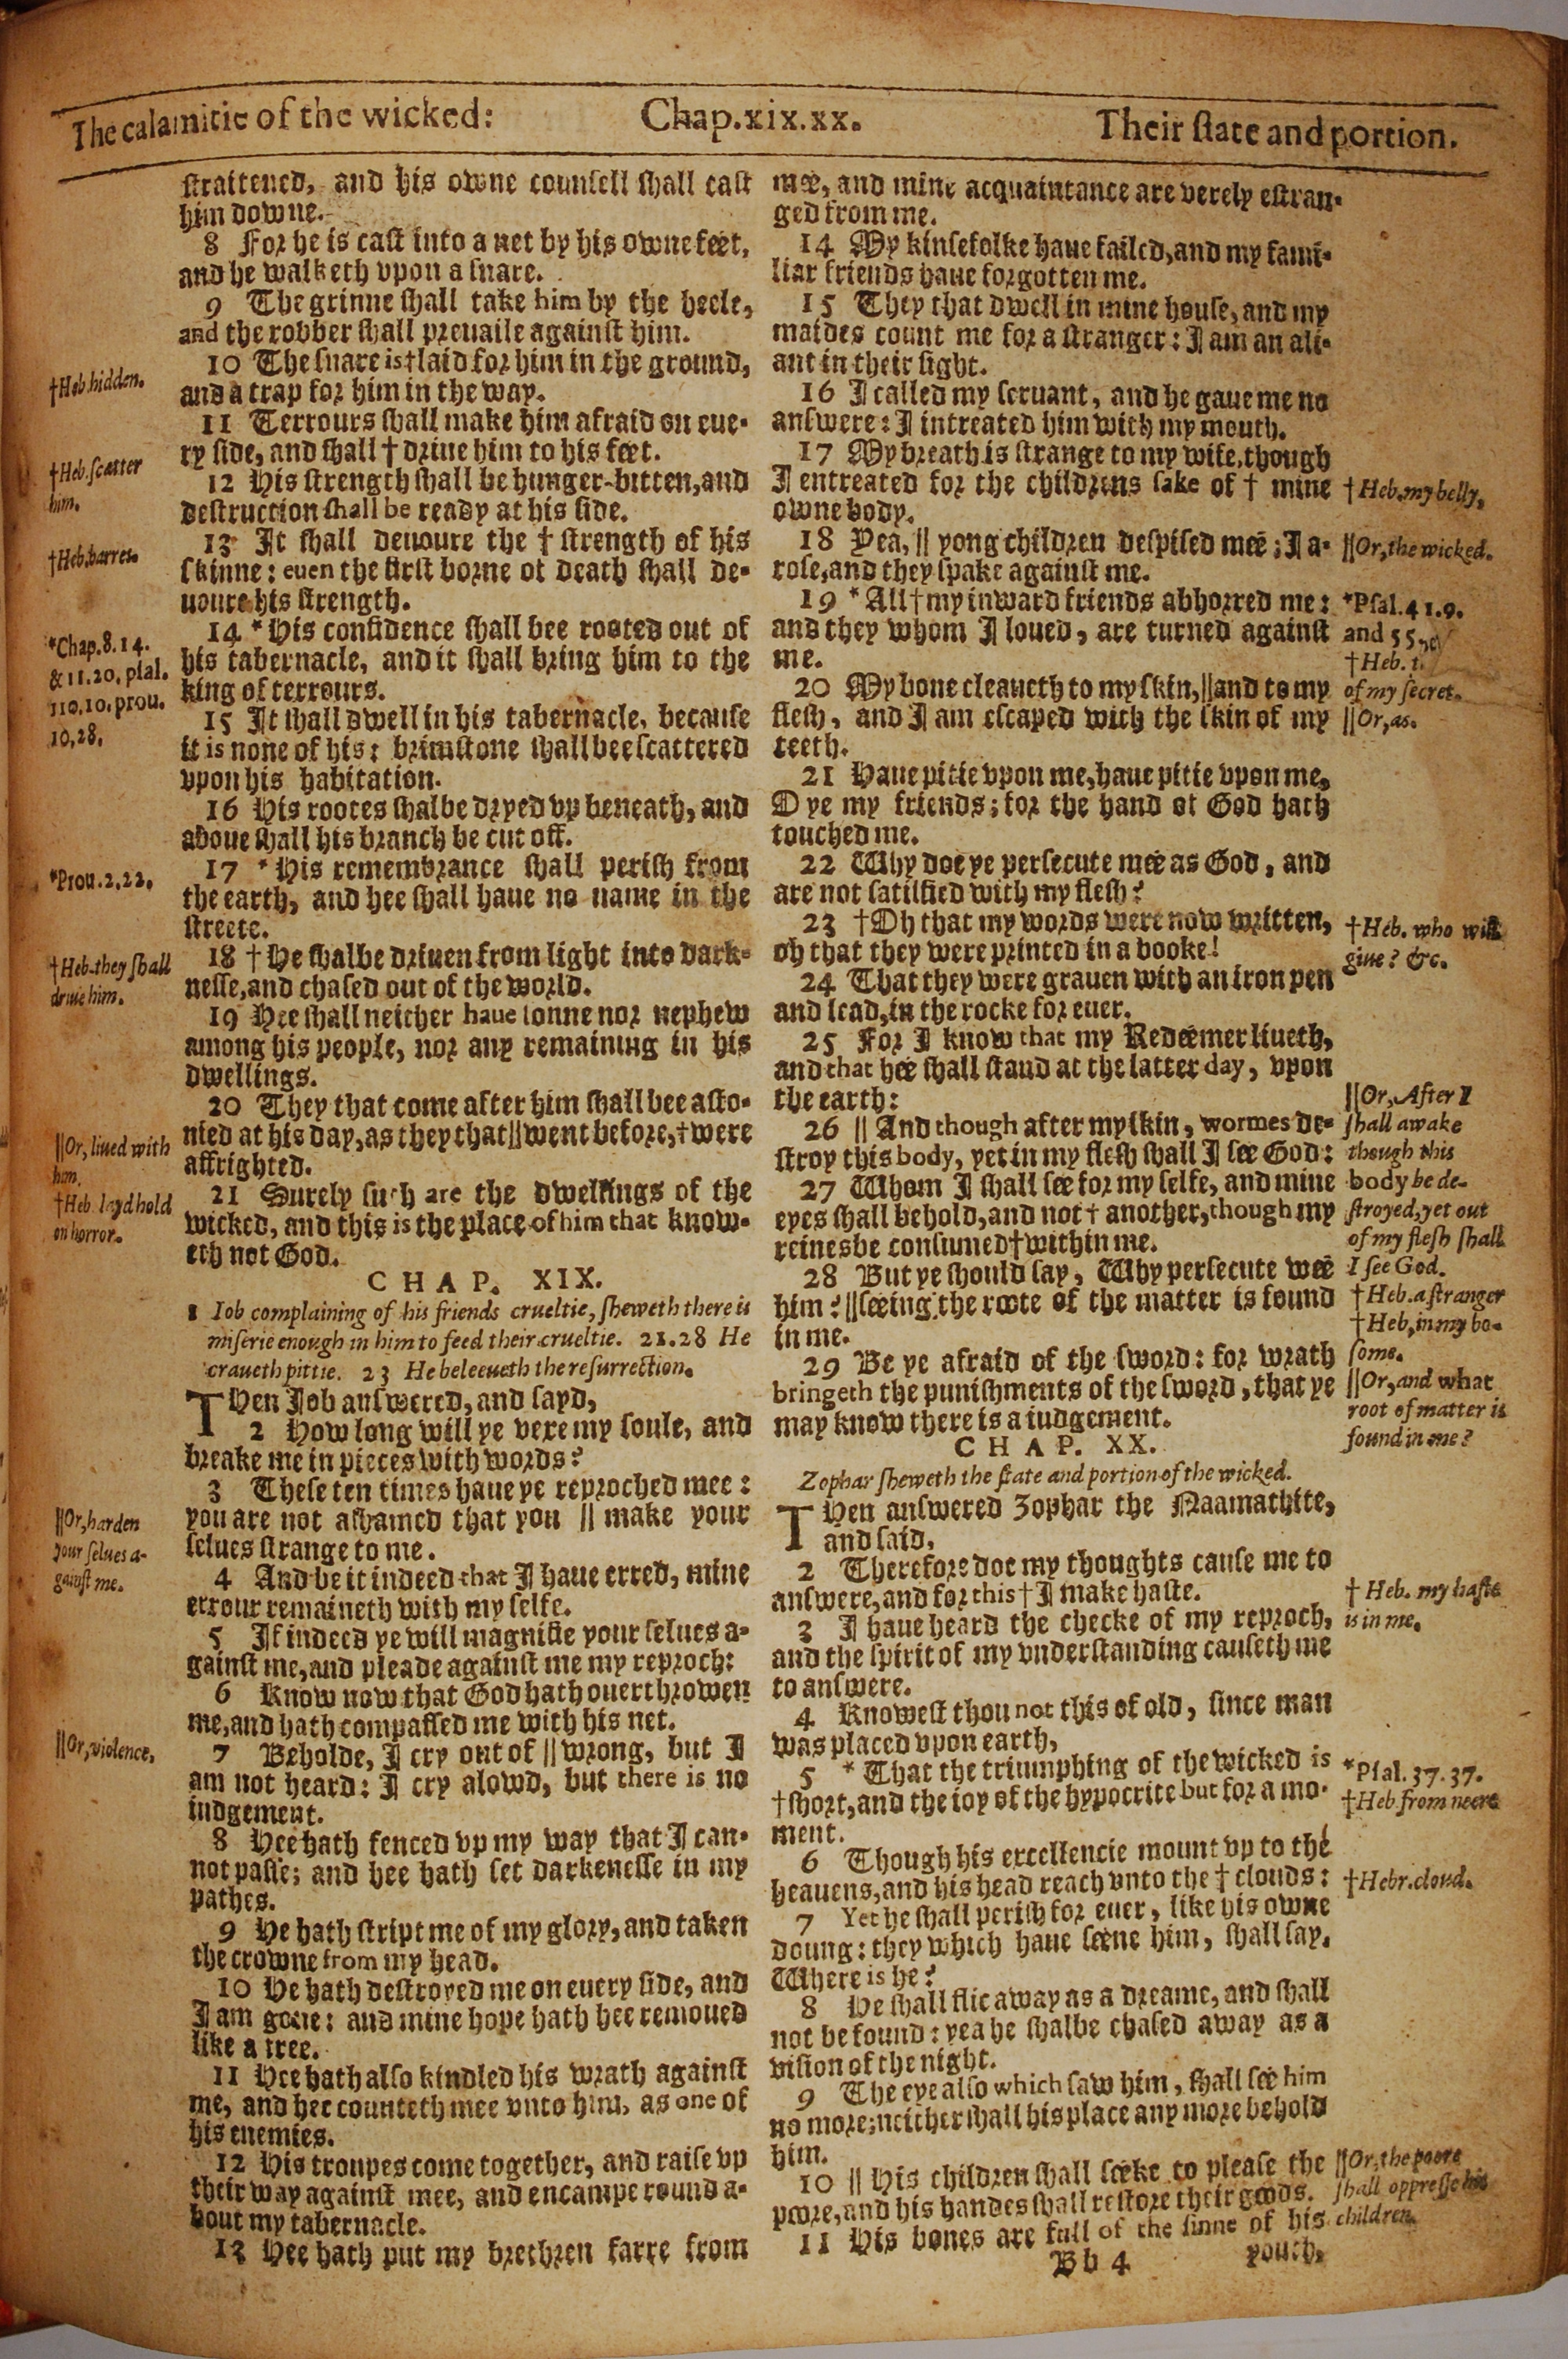 The calamitie of the wicked: Chap.xix.xx. Their ſtate and portion.
ſtraitened, and his owne counſell ſhall caſt
him downe.
8 For he is caſt into a net by his owne feet,
and he walketh vpon a ſnare.
9 The grinne ſhall take him by the heele,
and the robber ſhall preuaile againſt him.
10 The ſnare is †laid for him in the ground,
and a trap for him in the way.
11 Terrours ſhall make him afraid on eue-
ry ſide, and ſhall † driue him to his feet.
12 His ſtrength ſhall be hunger-bitten, and
deſtruction ſhall be ready at his ſide.
13 It ſhall deuoure the † ſtrength of his
ſkinne: euen the firſt borne of death ſhall de-
uoure his ſtrength.
14 *His confidence ſhall bee rooted out of
his tabernacle, and it ſhall bring him to the
king of terrours.
15 It ſhall dwell in his tabernacle, becauſe
it is none of his: brimſtone ſhall bee ſcattered
vpon his habitation.
16 His rootes ſhalbe dryed vp beneath, and
aboue ſhall his branch be cut off.
17 *His remembrance ſhall periſh from
the earth, and hee ſhall haue no name in the
ſtreete.
18 †He ſhalbe driuen from light into dark-
neſſe, and chaſed out of the world.
19 Hee ſhall neither haue ſonne nor nephew
among his people, nor any remaining in his
dwellings.
20 They that come after him ſhall bee aſto-
nied at his day, as they that ||went before, †were
affrighted.
21 Surely ſuch are the dwellings of the
wicked, and this is the place of him that know-
eth not God.
CHAP. XIX.
1 Iob complaining of his friends crueltie, ſheweth there is
miſerie enough in him to feed their crueltie. 21.28 He
craueth pittie. 23 He beleeueth the reſurrection.
THen Job anſwered, and ſayd,
2 How long will ye vexe my ſoule, and
breake me in pieces with words?
3 Theſe ten times haue ye reproched mee:
you are not aſhamed that you || make your
ſelues ſtrange to me.
4 And be it indeed that I haue erred, mine
errour remaineth with my ſelfe.
5 If indeed ye will magnifie your ſelues a-
gainſt me, and pleade againſt me my reproch:
6 Know now that God hath ouerthrowen
me, and hath compaſſed me with his net.
7 Beholde, I cry out of || wrong, but I
am not heard: I cry alowd, but there is no
iudgement.
8 Hee hath fenced vp my way that I can-
not paſſe; and hee hath ſet darkeneſſe in my
pathes.
9 He hath ſtript me of my glory, and taken
the crowne from my head.
10 He hath deſtroyed me on euery ſide, and
I am gone: and mine hope hath hee remoued
like a tree.
11 Hee hath alſo kindled his wrath againſt
me, and hee counteth mee vnto him, as one of
his enemies.
12 His troupes come together, and raiſe vp
their way againſt mee, and encampe round a-
bout my tabernacle.
13 Hee hath put my brethren farre from
†Heb. hidden.
†Heb. ſcatter
him.
†Heb. barres.
*Chap.8.14.
& 11.20. pſal.
110.10. prou.
10,28.
*Prou.2.22.
†Heb. they ſhall
driue him.
||Or, liued with
him.
†Heb. layd hold
on horror.
||Or, harden
your ſelues a-
gainſt me.
||Or, violence.
mee, and mine acquaintance are verely eſtran-
ged from me.
14 My kinſefolke haue failed, and my fami-
liar friends haue forgotten me.
15 They that dwell in mine houſe, and my
maides count me for a ſtranger: I am an ali-
ant in their ſight.
16 I called my ſeruant, and he gaue me no
anſwere: I intreated him with my mouth.
17 My breath is ſtrange to my wife, though
I entreated for the childrens ſake of † mine
owne body.
18 Yea, || yong children deſpiſed mee; I a-
roſe, and they ſpake againſt me.
19 *All †my inward friends abhorred me:
and they whom I loued, are turned againſt
me.
20 My bone cleaueth to my ſkin, ||and to my
fleſh, and I am eſcaped with the ſkin of my
teeth.
21 Haue pitie vpon me, haue pitie vpon me,
O ye my friends; for the hand of God hath
touched me.
22 Why doe ye perſecute mee as God, and
are not ſatiſfied with my fleſh?
23 †Oh that my words were now written,
oh that they were printed in a booke!
24 That they were grauen with an iron pen
and lead, in the rocke for euer.
25 For I know that my Redeemer liueth,
and that hee ſhall ſtand at the latter day, vpon
the earth:
26 || And though after my ſkin, wormes de-
ſtroy this body, yet in my fleſh ſhall I ſee God:
27 Whom I ſhall ſee for my ſelfe, and mine
eyes ſhall behold, and not † another, though my
reines be conſumed †within me.
28 But ye ſhould ſay, Why perſecute wee
him? ||ſeeing the roote of the matter is found
in me.
29 Be ye afraid of the ſword: for wrath
bringeth the puniſhments of the ſword, that ye
may know there is a iudgement.
CHAP. XX.
Zophar ſheweth the ſtate and portion of the wicked.
THen anſwered Zophar the Naamathite,
and ſaid,
2 Therefore doe my thoughts cauſe me to
anſwere, and for this † I make haſte.
3 I haue heard the checke of my reproch,
and the ſpirit of my vnderſtanding cauſeth me
to anſwere.
4 Knoweſt thou not this of old, ſince man
was placed vpon earth,
5 * That the triumphing of the wicked is
†ſhort, and the ioy of the hypocrite but for a mo-
ment.
6 Though his excellencie mount vp to the
heauens, and his head reach vnto the † clouds:
7 Yet he ſhall periſh for euer, like his owne
doung: they which haue ſeene him, ſhall ſay,
Where is he?
8 He ſhall flie away as a dreame, and ſhall
not be found: yea he ſhalbe chaſed away as a
viſion of the night.
9 The eye alſo which ſaw him, ſhall ſee him
no more; neither ſhall his place any more behold
him.
10 || His children ſhall ſeeke to pleaſe the
poore, and his handes ſhall reſtore their goods.
11 His bones are full of the ſinne of his
Bb 4 youth,
†Heb. my belly.
||Or, the wicked.
*Pſal.41.9.
and 55.
†Heb.
of my ſecret.
||Or, as.
†Heb. who will
giue? &c.
||Or, After I
ſhall awake
though this
body be de-
ſtroyed, yet out
of my fleſh ſhall
I ſee God.
†Heb. a ſtranger
†Heb, in my bo-
ſome.
||Or, and what
root of matter is
found in me?
† Heb. my haſte
is in me.
*Pſal.37.37.
†Heb. from neere
†Hebr. cloud.
||Or, the poore
ſhall oppreſſe his
children.